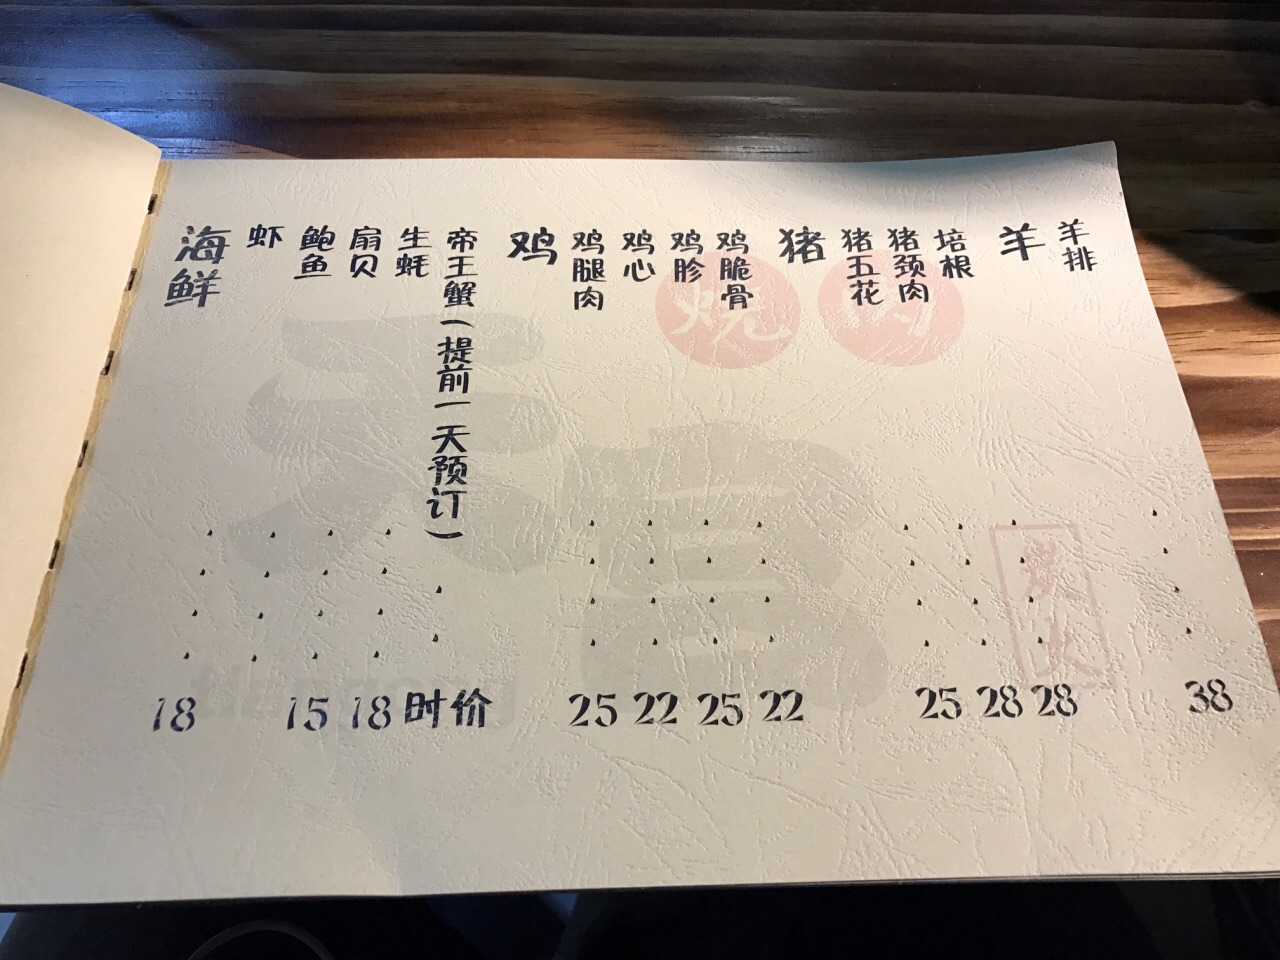 海鲜
虾
鲍鱼
扇贝
生蚝
帝王蟹(提前一天预订)
鸡
鸡腿肉
鸡心
鸡胗
鸡脆骨
猪
猪五花
猪颈肉
培根
羊
羊排
18
15
18
时价
25
22
25
22
25
28
28
38
烧
肉